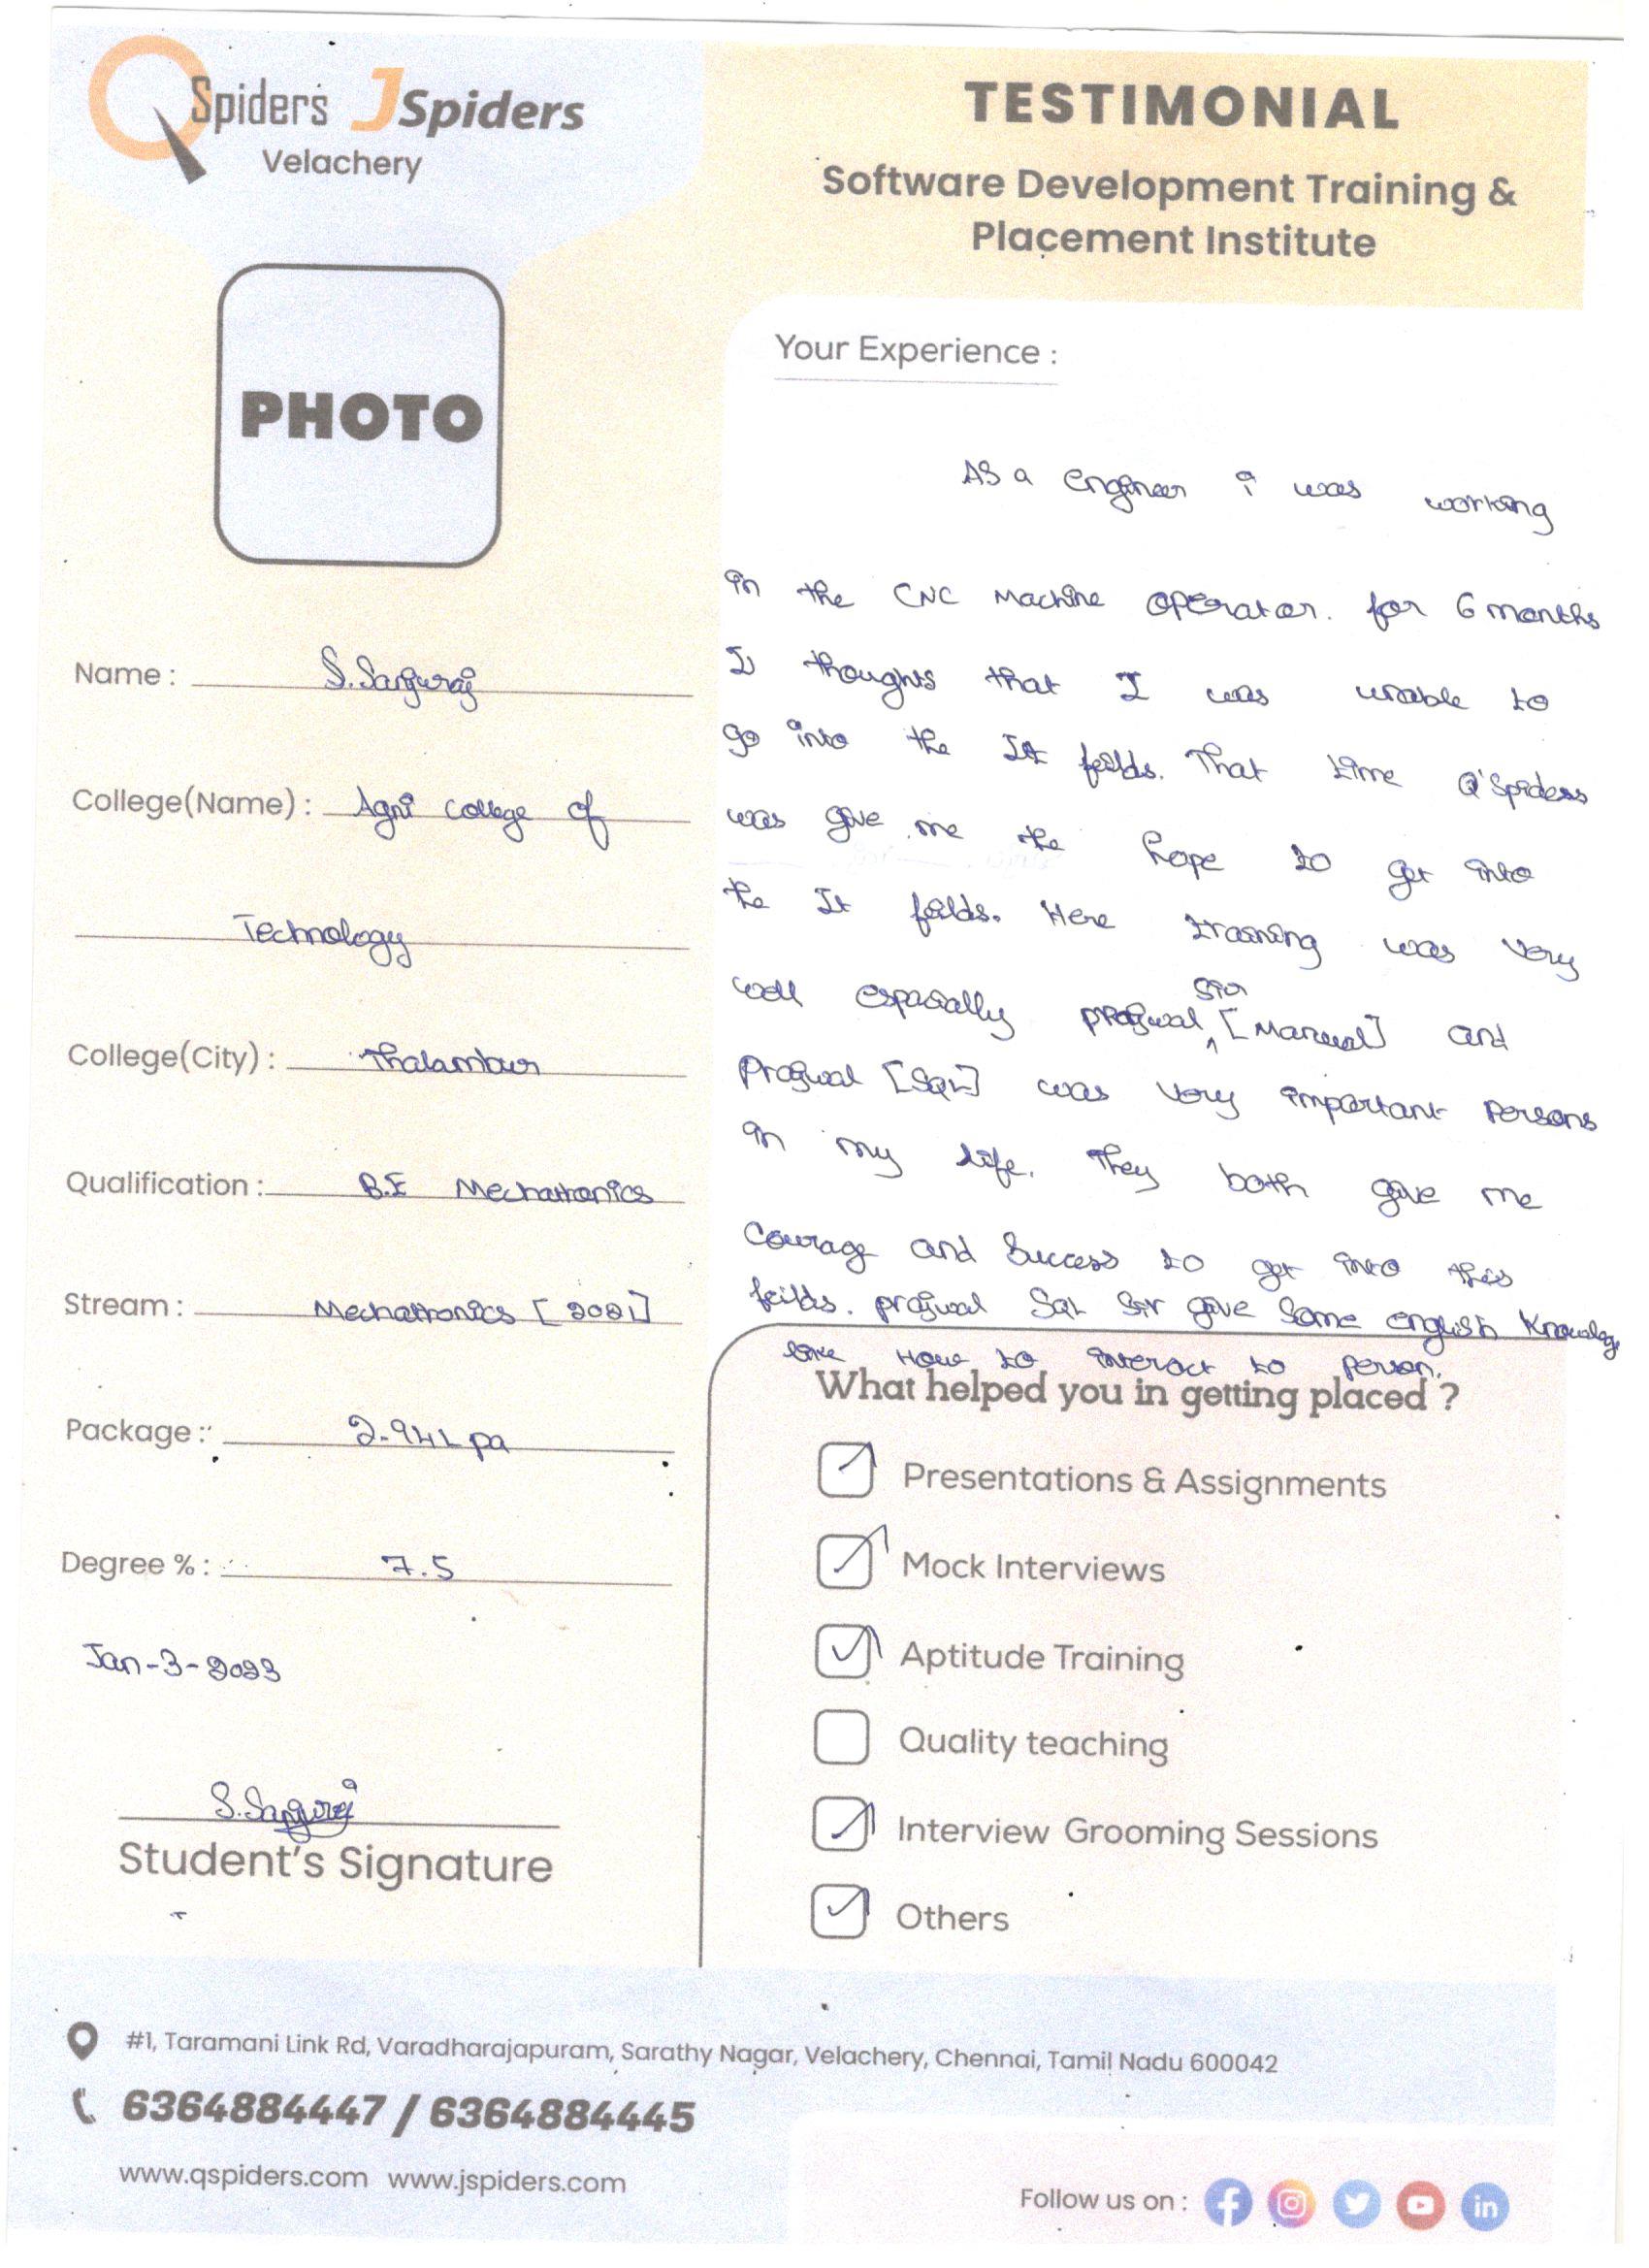 QSpiders JSpiders
Velachery
TESTIMONIAL
Software Development Training &
Placement Institute
PHOTO
Your Experience :
As a engineer i was working
in the CNC Machine operator. for 6 months
I thoughts that I was unable to
go into the It feilds. That time Q'Spiders
was give me the hope to get into
the It feilds. Here training was very
well espacially prajwal sir [Manual] and
Prajwal [SQL] was very important persons
in my life. They both give me
Courage and Success to get into this
feilds. prajwal SQL Sir give Some english Knowledg
like How to interact to person.
Name : S. Sanjuraj
College(Name) : Agni college of
Technology
College(City) : Thalambur
Qualification : B.E Mechatronics
Stream : Mechatronics [2021]
Package : 2.94L pa
Degree % : 7.5
Jan-3-2023
S. Sanjuraj
Student's Signature
What helped you in getting placed ?
Presentations & Assignments
Mock Interviews
Aptitude Training
Quality teaching
Interview Grooming Sessions
Others
#1, Taramani Link Rd, Varadharajapuram, Sarathy Nagar, Velachery, Chennai, Tamil Nadu 600042
6364884447 / 6364884445
www.qspiders.com www.jspiders.com
Follow us on :